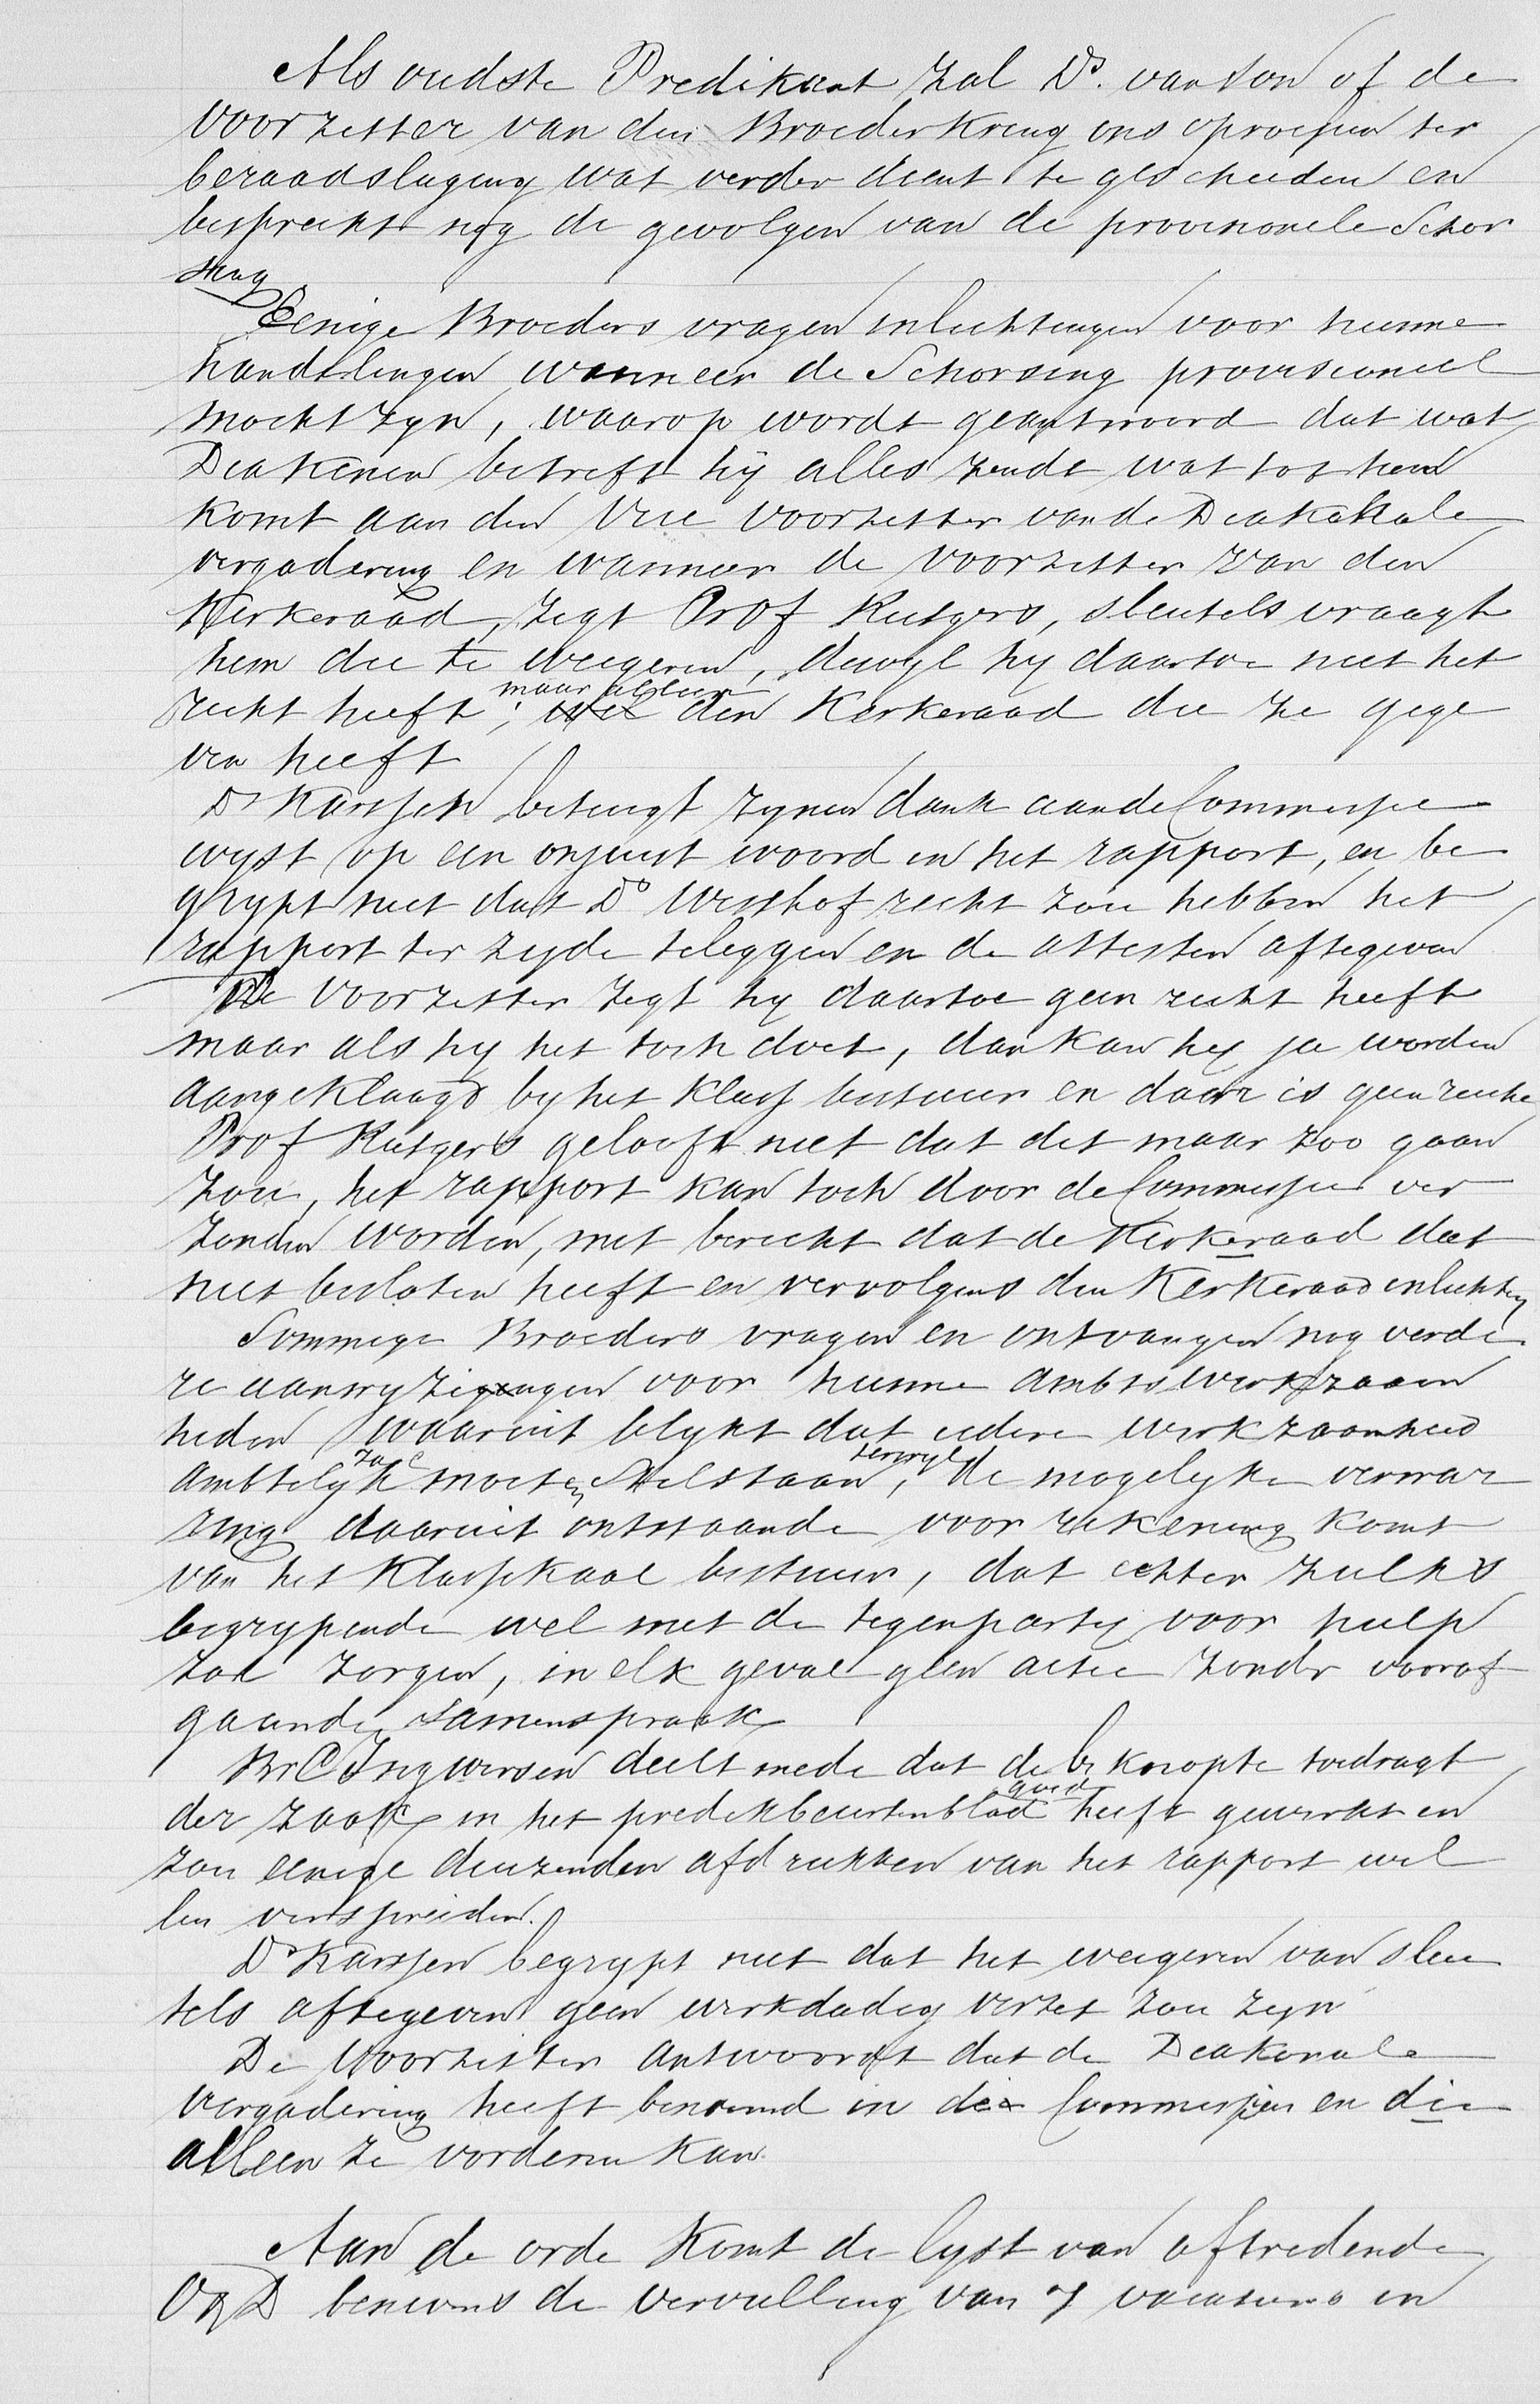 Als oudste Predikant zal Ds. van Son of de
voorzitter van den Broederkring ons oproepen ter
beraadslaging wat verder dient te geschieden en
bespreekt nog de gevolgen van de provisioneele Schor
sing
Eenige Broeders vragen inlichtingen voor hunne
handelingen wanneer de Schorsing provisioneel
mocht zyn, waarop wordt geantwoord dat wat
Diakenen betreft hy alles zendt wat tot hem
komt aan den Vice voorzitter van de Diakonale
vergadering en wanneer de voorzitter van den
Kerkeraad, zegt Prof Rutgers, sleutels vraagt
hem die te weigeren, dewyl hy daartoe niet het
recht heeft; maar alleen den Kerkeraad die ze gege
ven heeft
Ds Karssen betuigt zynen dank aan de Commissie
wyst op een onjuist woord in het rapport, en be
grypt niet dat Ds Westhof recht zou hebben het
rapport ter zyde teleggen en de attesten aftegeven
De voorzitter zegt hy daartoe geen recht heeft
maar als hy het toch doet, dan kan hy ja worden
aangeklaagd by het Klass bestuur en daar is geen recht
Prof Rutgers gelooft niet dat dit maar zoo gaan
zou, het rapport kan toch door de Commissie ver
zonden worden, met bericht dat de Kerkeraad dat
niet besloten heeft en vervolgens den Kerkeraad inlichten
Sommige Broeders vragen en ontvangen nog verde
re aanwyzigingen voor hunne ambtswerkzaam
heden waaruit blykt dat iedere werkzaamheid
ambtelyk zal moeten stilstaan, terwyl de mogelyke verwar
ring daaruit ontstaande voor rekening komt
van het Klassikaal bestuur, dat echter zulks
begrypende wel met de tegenparty voor hulp
zal zorgen, in elk geval geen actie zonder vooraf
gaande samenspraak
Br C Ingwersen deelt mede dat de beknopte toedragt
der zaak in het predikbeurtenblad goed heeft gewerkt en
zou eenige duizenden afdrukken van het rapport wil
len verspreiden.
Ds Karssen begrypt niet dat het weigeren van sleu
tels aftegeven geen werkdadig verzet zou zyn
De Voorzitter antwoordt dat de Diakonale
vergadering heeft benoemd in die Commissien en die
alleen ze vorderen kan
Aan de orde komt de lyst van aftredende
O & D benevens de vervulling van 7 vacatures in